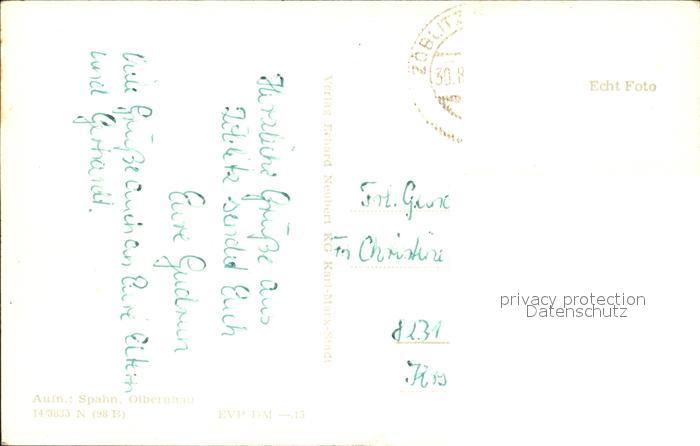 Herzliche Grüße aus
Zöblitz sendet Euch
Eure Gudrun
Viele Grüße auch an Eure Eltern
und Gerhardt.
Verlag Erhard Neubert KG Karl-Marx-Stadt
ZÖBLITZ
30.8
Echt Foto
Frl.
Christine
8231
privacy protection
Datenschutz
Aufn.: Spahn, Olbernhau
14/3835 N (98 B)
EVP DM —.15